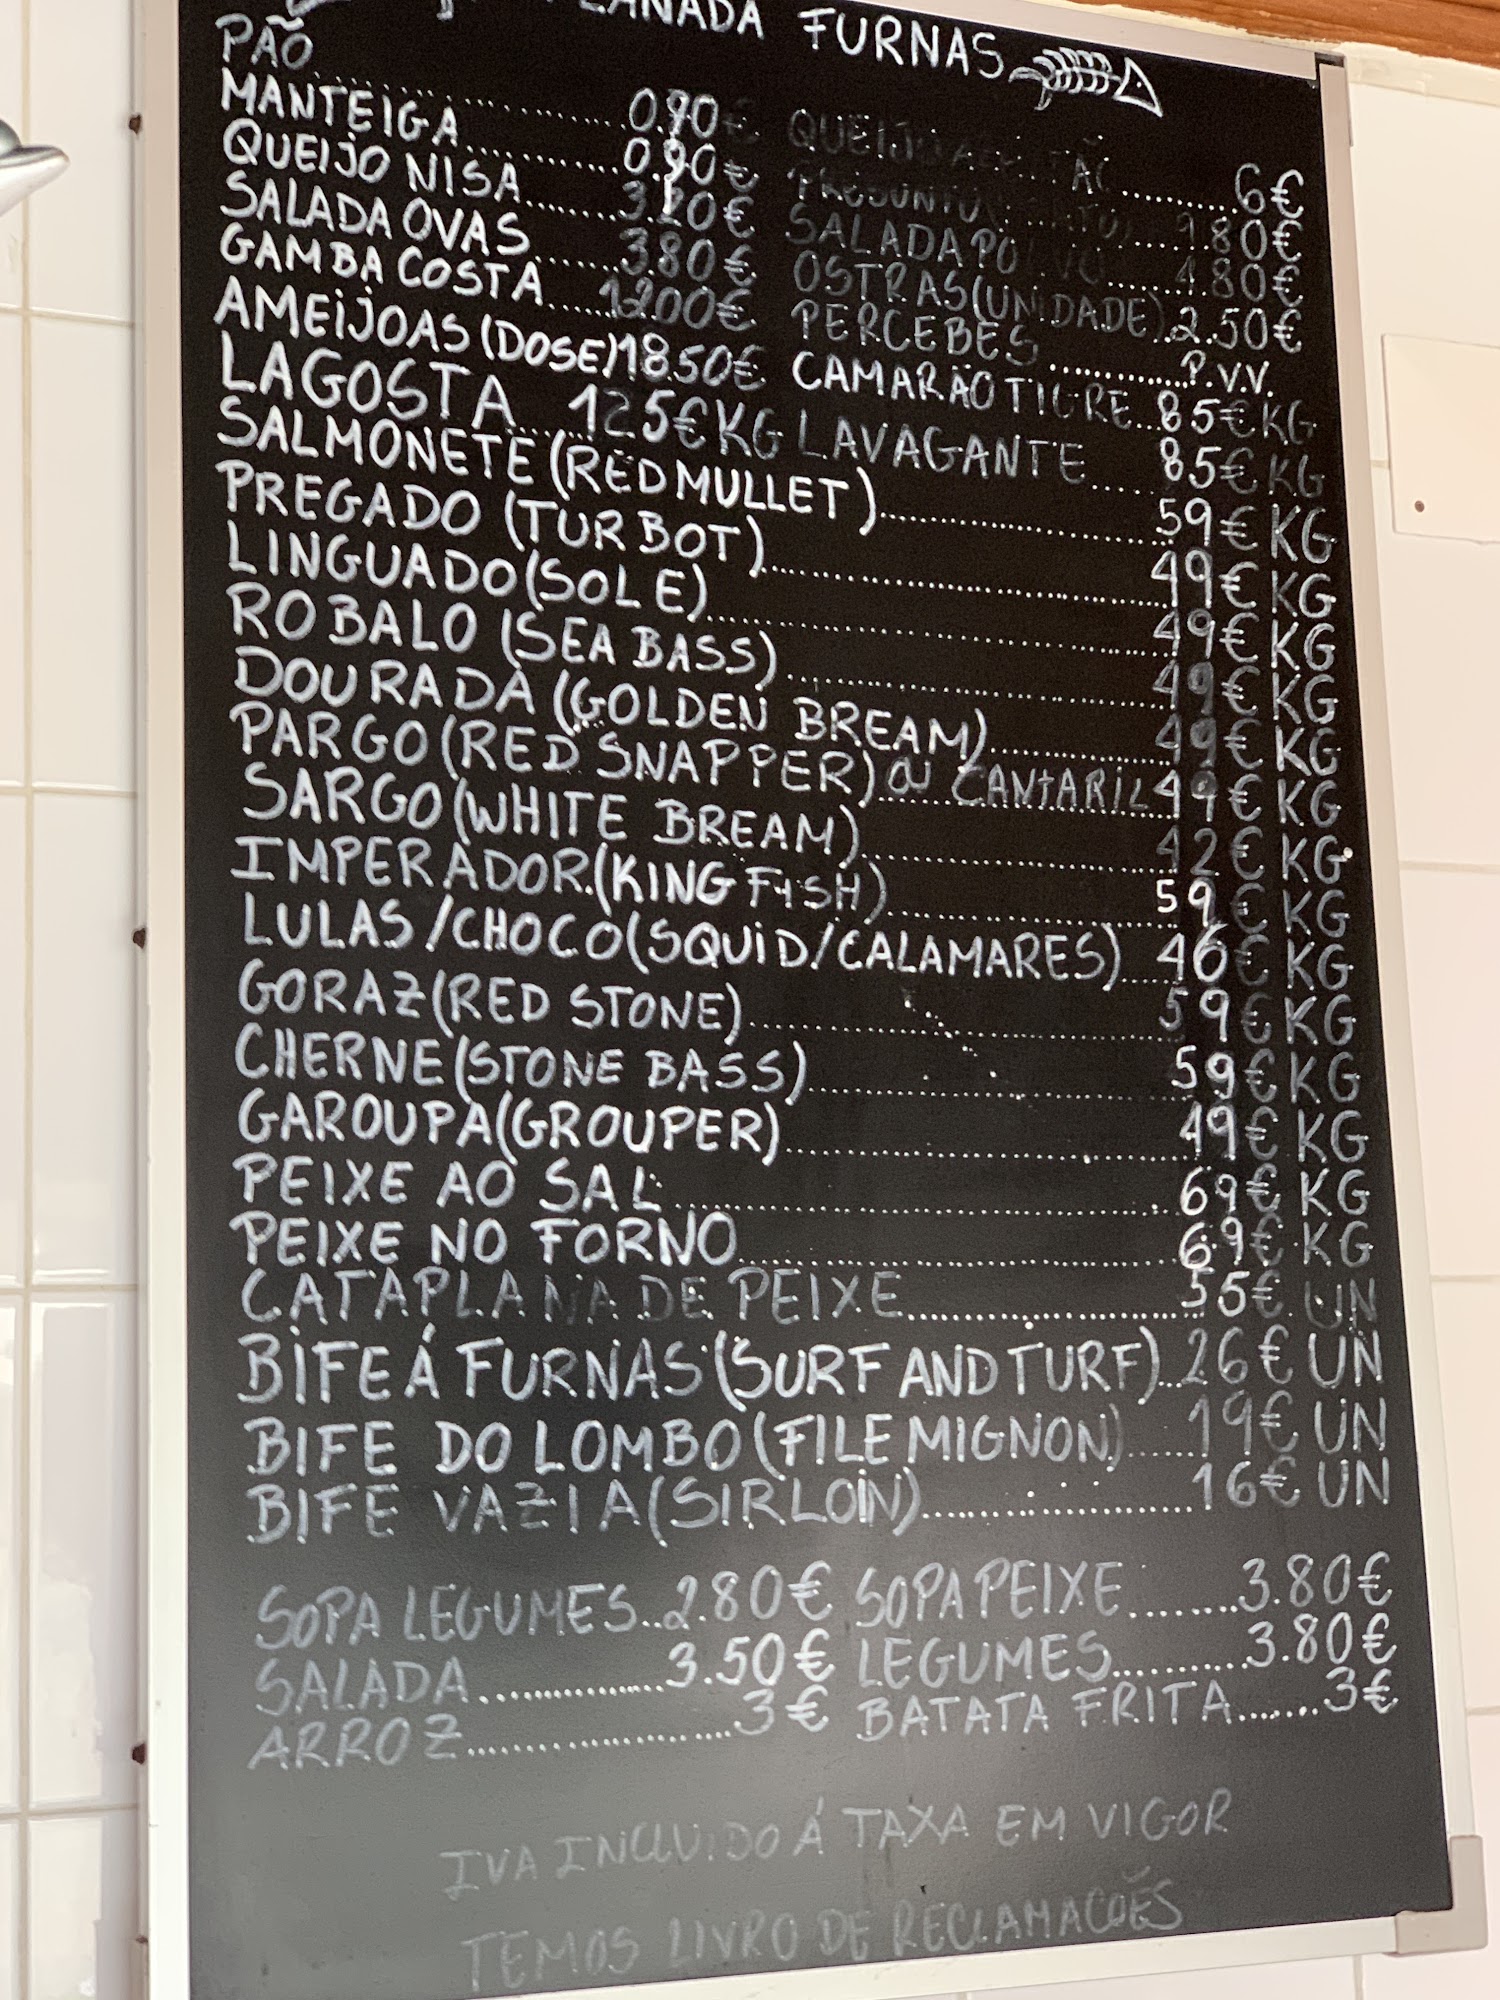 ESPLANADA FURNAS
PÃO ........ 0.90€ QUEIJO ........ 6€
MANTEIGA ........ 0.90€ PRESUNTO ........ 9.80€
QUEIJO NISA ........ 3.20€ SALADA POLVO ........ 4.80€
SALADA OVAS ........ 3.80€ OSTRAS (UNIDADE) .. 2.50€
GAMBA COSTA .... 12.00€ PERCEBES ........ P.V.V.
AMEIJOAS (DOSE) 18.50€ CAMARÃO TIGRE .. 85€ KG
LAGOSTA .... 125€ KG LAVAGANTE .... 85€ KG
SALMONETE (RED MULLET) ........ 59€ KG
PREGADO (TURBOT) ........ 49€ KG
LINGUADO (SOLE) ........ 49€ KG
ROBALO (SEA BASS) ........ 49€ KG
DOURADA (GOLDEN BREAM) ........ 49€ KG
PARGO (RED SNAPPER) OU CANTARIL 49€ KG
SARGO (WHITE BREAM) ........ 42€ KG
IMPERADOR (KING FISH) ........ 59€ KG
LULAS/CHOCO (SQUID/CALAMARES) .. 46€ KG
GORAZ (RED STONE) ........ 59€ KG
CHERNE (STONE BASS) ........ 59€ KG
GAROUPA (GROUPER) ........ 49€ KG
PEIXE AO SAL ........ 69€ KG
PEIXE NO FORNO ........ 69€ KG
CATAPLANA DE PEIXE ........ 55€ UN
BIFE Á FURNAS (SURF AND TURF) .. 26€ UN
BIFE DO LOMBO (FILE MIGNON) .... 19€ UN
BIFE VAZIA (SIRLOIN) ........ 16€ UN
SOPA LEGUMES .. 2.80€ SOPA PEIXE ........ 3.80€
SALADA ........ 3.50€ LEGUMES ........ 3.80€
ARROZ ........ 3€ BATATA FRITA ....... 3€
IVA INCLUIDO Á TAXA EM VIGOR
TEMOS LIVRO DE RECLAMACOÊS